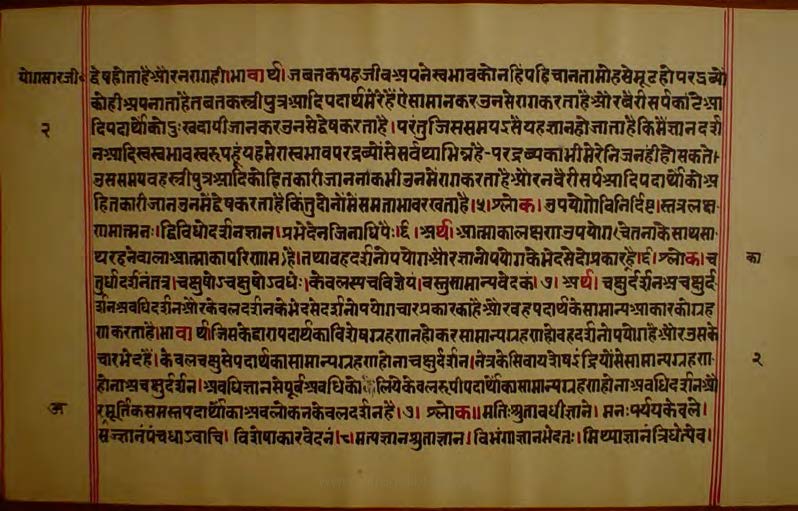 योगसारजी॰ द्वेषहोताहैऔरनरागही।भावार्थ।जबतकयहजीवअपनेस्वभावकोनहिंपहिचानतामोहसेमूढहोपरद्रव्यों
कोहीअपनाताहैतबतकस्त्रीपुत्रआदिपदार्थमेरेहैंऐसामानकरउनसेरागकरताहैऔरबैरीसर्पकांटेआ
२ दिपदार्थोंकोदुःखदायीजानकरउनसेद्वेषकरताहै।परंतुजिससमयइसैयहज्ञानहोजाताहैकिमैंज्ञानदर्श
नआदिस्वस्वभावस्वरूपहूंयहमेरास्वभावपरद्रव्योंसेसर्वथाभिन्नहै-परद्रव्यकाभीमेरेनिजनहींहोसकते।
उससमयवहस्त्रीपुत्रआदिकोहितकारीजाननाकभीउनमेंरागकरताहैऔरनबैरीसर्पआदिपदार्थोंकोअ
हितकारीजानउनमेंद्वेषकरताहैकिंतुदोनोंमेंसमताभावरखताहै।५।श्लोक।उपयोगोविनिर्दिष्टस्तत्रलक्ष
णमात्मनः।द्विविधोदर्शनज्ञान।प्रमेदेनजिनाधिपैः।६।अर्थ।आत्माकालक्षणउपयोगचेतनाकेसाथसा
थरहनेवालाआत्माकापरिणाम)है।तथावहदर्शनोपयोगऔरज्ञानोपयोगकेभेदसेदोप्रकारहै।६।श्लोक।च का
तुर्धादर्शनंतत्र।चक्षुषोऽचक्षुषोऽवधेः।केवलस्यचविज्ञेयं।वस्तुसामान्यवेदकं।७।अर्थ।चक्षुर्दर्शनअचक्षुर्द
र्शनअवधिदर्शनऔरकेवलदर्शनकेभेदसेदर्शनोपयोगचारप्रकारकाहैऔरवहपदार्थकेसामान्यआकारकोग्रह
णकरताहै।भावार्थ।जिसकेद्वारापदार्थकाविशेषग्रहणनहोकरसामान्यग्रहणहोवहदर्शनोपयोगहैऔरउसके
चारभेदहैं।केवलचक्षुसेपदार्थकासामान्यग्रहणहोनाचक्षुर्दर्शन।नेत्रकेसिवायशेषइंद्रियोंसेसामान्यग्रहण २
होनाअचक्षुर्दर्शन।अवधिज्ञानसेपूर्वअवधिको लियेकेवलरूपीपदार्थोंकासामान्यग्रहणहोनाअवधिदर्शनऔ
रमूर्तिकसमस्तपदार्थोंकाअवलोकनकेवलदर्शनहै।७।श्लोक॥मतिःश्रुतावधीज्ञाने।मनःपर्ययकेवले।
सज्ज्ञानंपंचधाऽवाचि।विशेषाकारवेदनं।८।मत्यज्ञानश्रुताज्ञान।विभंगाज्ञानभेदतः।मिथ्याज्ञानंत्रिधेत्येव।